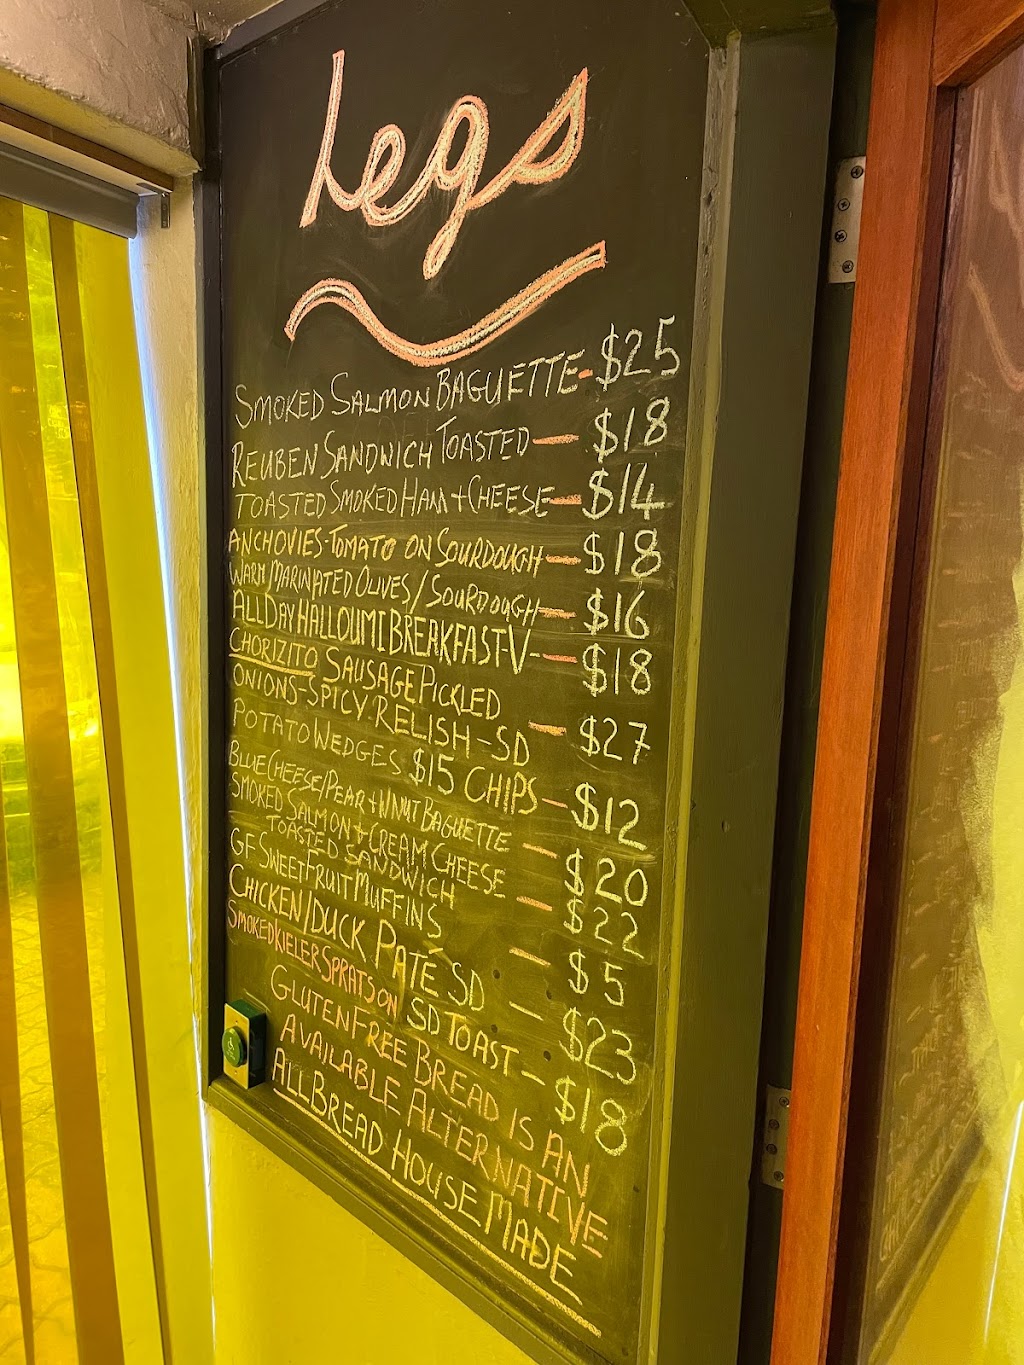 Legs
SMOKED SALMON BAGUETTE - $25
REUBEN SANDWICH TOASTED — $18
TOASTED SMOKED HAM + CHEESE — $14
ANCHOVIES - TOMATO ON SOURDOUGH — $18
WARM MARINATED OLIVES / SOURDOUGH — $16
ALL DAY HALLOUMI BREAKFAST - V - — $18
CHORIZITO SAUSAGE PICKLED
ONIONS - SPICY RELISH - SD — $27
POTATO WEDGES $15 CHIPS — $12
BLUE CHEESE/PEAR + WNUT BAGUETTE — $20
SMOKED SALMON + CREAM CHEESE — $22
TOASTED SANDWICH
GF SWEET FRUIT MUFFINS — $5
CHICKEN/DUCK PATÉ SD — $23
SMOKED KIELER SPRATS ON SD TOAST — $18
GLUTEN FREE BREAD IS AN
AVAILABLE ALTERNATIVE
ALL BREAD HOUSE MADE